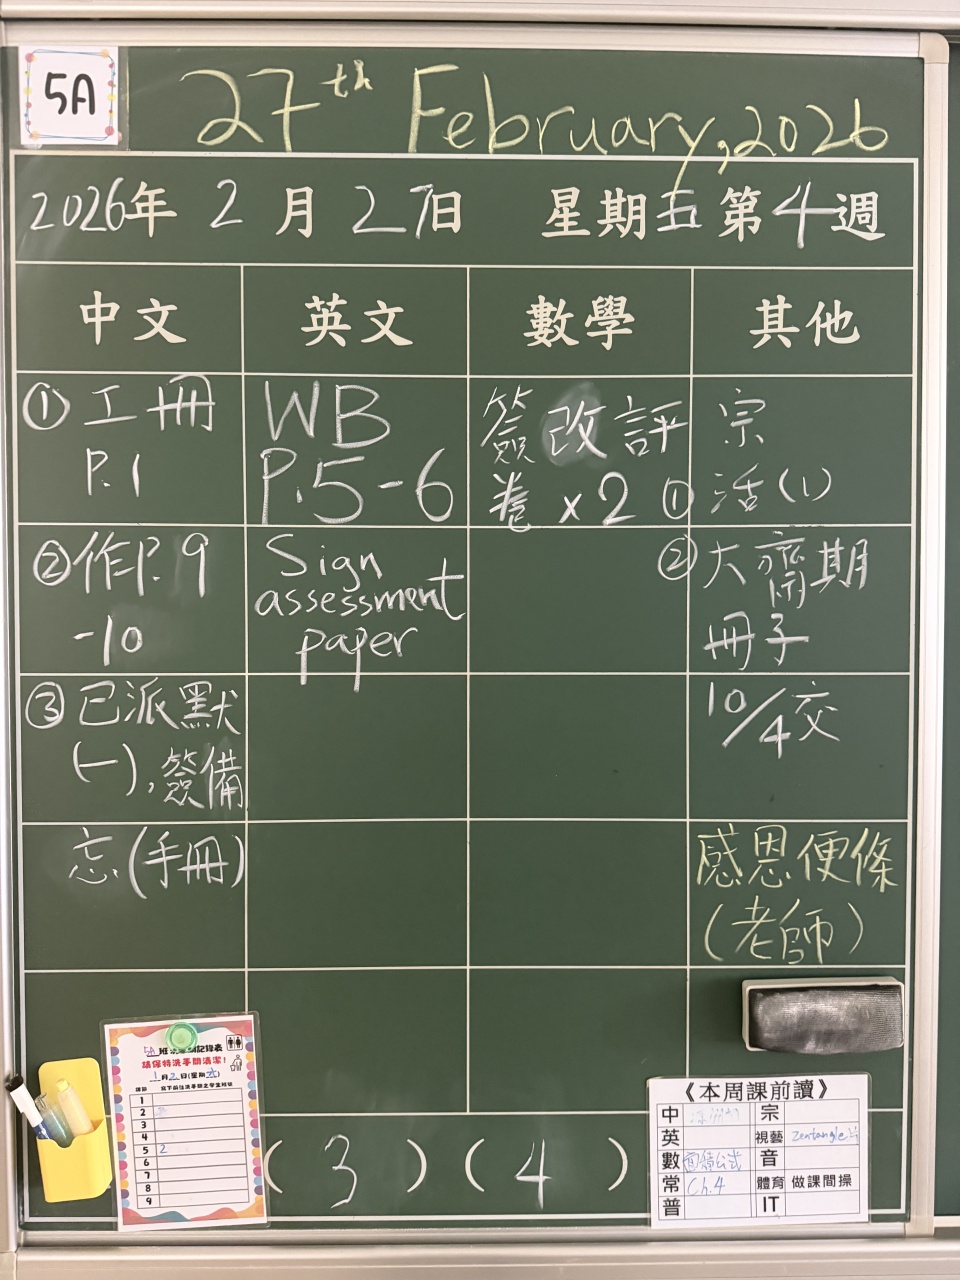 5A
27th February, 2026
2026年 2 月 27日 星期五 第 4 週
中文 英文 數學 其他
① 工冊
P.1
② 作P. 9
-10
③ 已派默
(一), 簽備
忘(手冊)
WB
P.5-6
Sign
assessment
paper
簽改評
卷 x2
① 宗
活(1)
② 大齋期
冊子
10/4交
感恩便條
(老師)
請保持洗手間清潔!
1月2日(星期五)
1
2
3
4
5 2
6
7
8
9
( 3 ) ( 4 )
《本周課前讀》
中 宗
英 視藝 Zentangle
數 音
常 Ch.4 體育 做課間操
普 IT